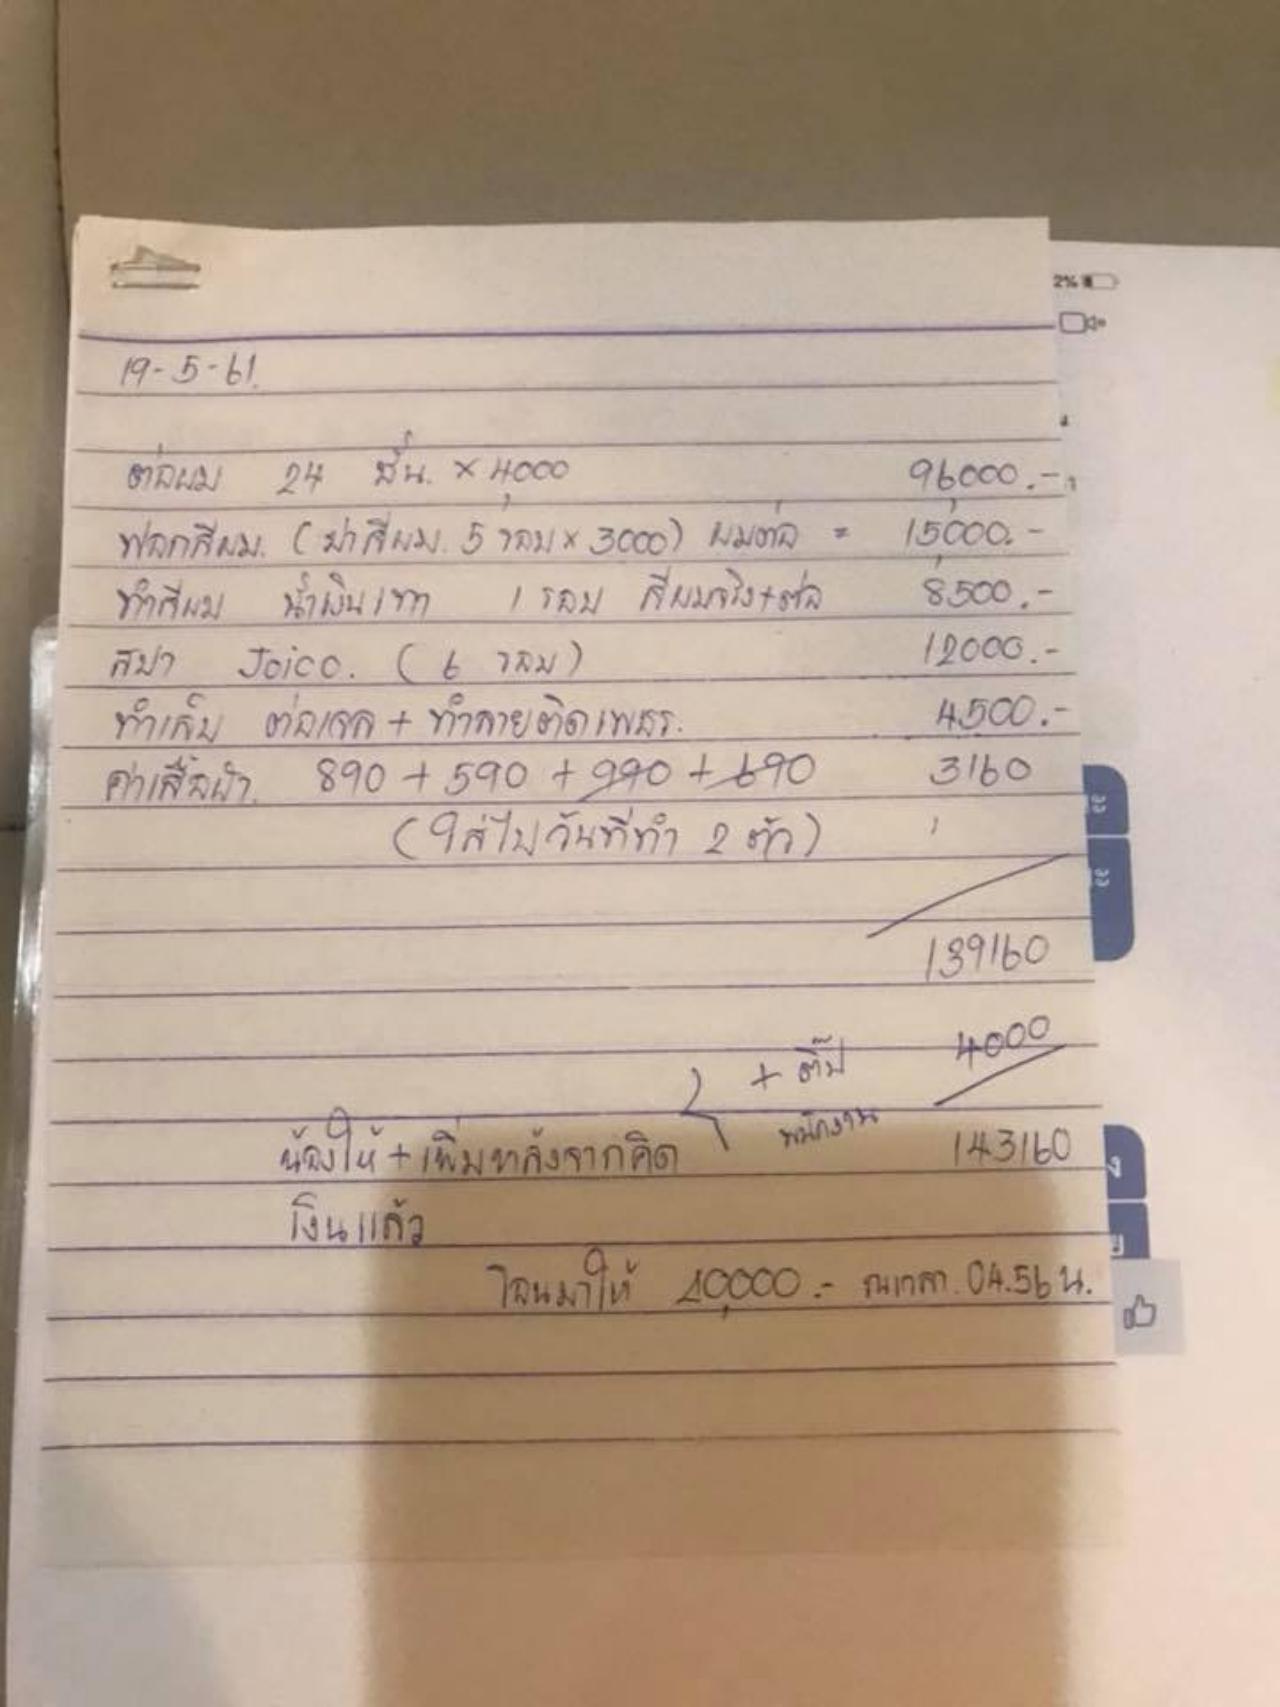 2%
19-5-61.
ต่อผม 24 ชั้น. × 4,000 96,000.-
ฟอกสีผม. (ฆ่าสีผม. 5 รอบ × 3000) ผมต่อ = 15,000.-
ทำสีผม น้ำเงินเทา 1 รอบ สีผมจริง+ต่อ 8500.-
สปา Joico. (6 รอบ) 12000.-
ทำเล็บ ต่อเจล + ทำลายติดเพชร. 4,500.-
ค่าเสื้อผ้า. 890 + 590 + 990 + 690 3,160
(ใส่ไปวันที่ทำ 2 ตัว)
139160
+ ติ๊ป 4000
พนักงาน
น้องให้ + เพิ่มหลังจากคิด 143160
เงินแล้ว
โอนมาให้ 40,000.- ณเวลา. 04.56 น.